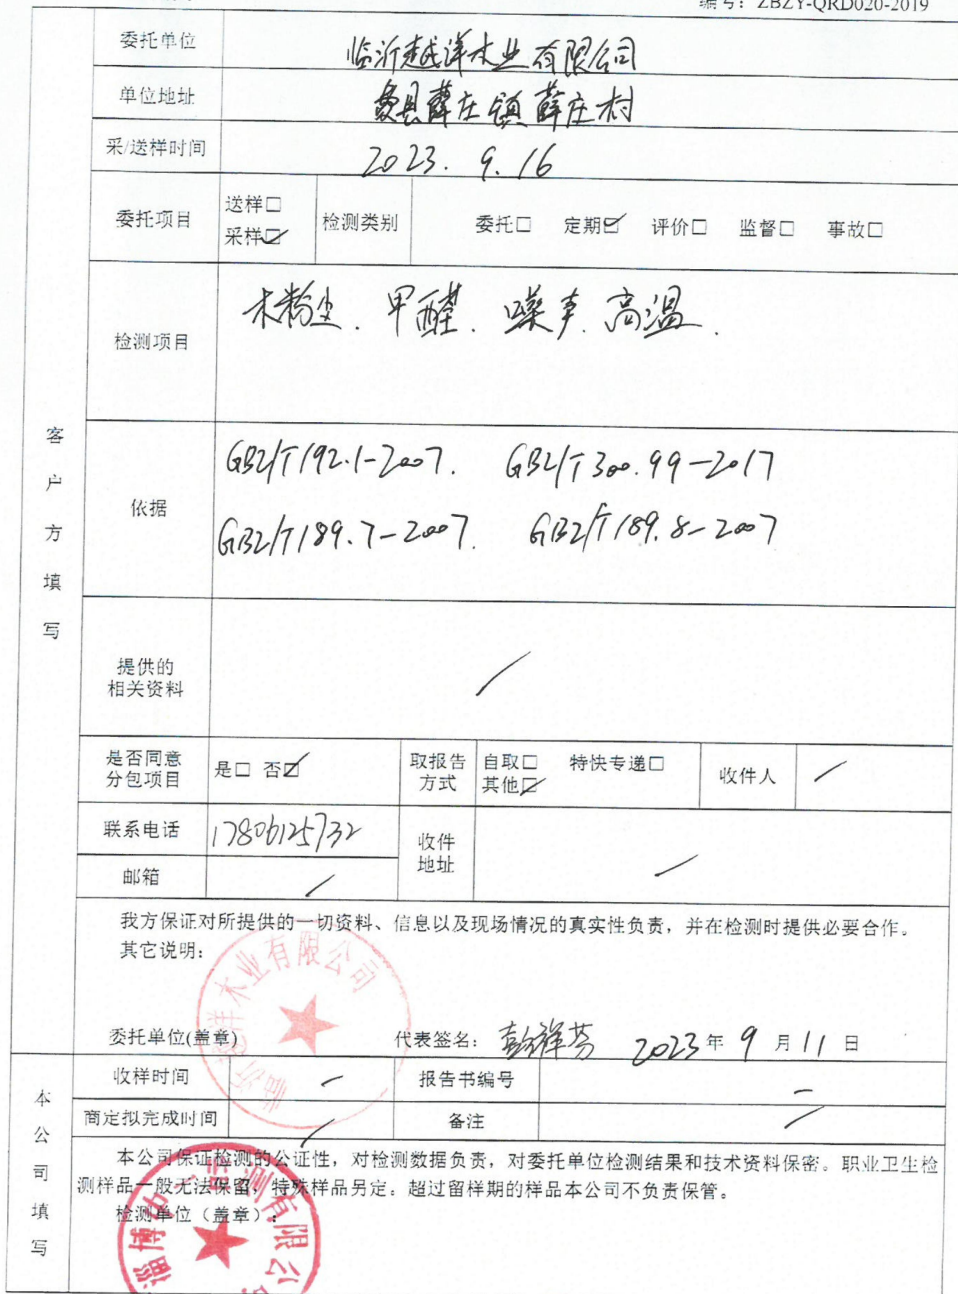 编号：ZBZY-QRD020-2019
委托单位 临沂越洋木业有限公司
单位地址 费县薛庄镇薛庄村
采/送样时间 2023.9.16
委托项目 送样□ 采样☑ 检测类别 委托□ 定期☑ 评价□ 监督□ 事故□
检测项目 木粉尘、甲醛、噪声、高温、
客户方填写
依据 GBZ/T192.1-2007. GBZ/T300.99-2017
GBZ/T189.7-2007. GBZ/T189.8-2007
提供的
相关资料 /
是否同意
分包项目 是□ 否☑ 取报告
方式 自取□ 特快专递□
其他☑ 收件人 /
联系电话 17806125732 收件
地址 /
邮箱 /
我方保证对所提供的一切资料、信息以及现场情况的真实性负责，并在检测时提供必要合作。
其它说明：
委托单位(盖章) 代表签名： 2023年9月11日
木业有限公司
本公司填写
收样时间 / 报告书编号 /
商定拟完成时间 / 备注 /
本公司保证检测的公证性，对检测数据负责，对委托单位检测结果和技术资料保密。职业卫生检
测样品一般无法保留，特殊样品另定。超过留样期的样品本公司不负责保管。
检测单位（盖章）：
淄博 检测有限公司